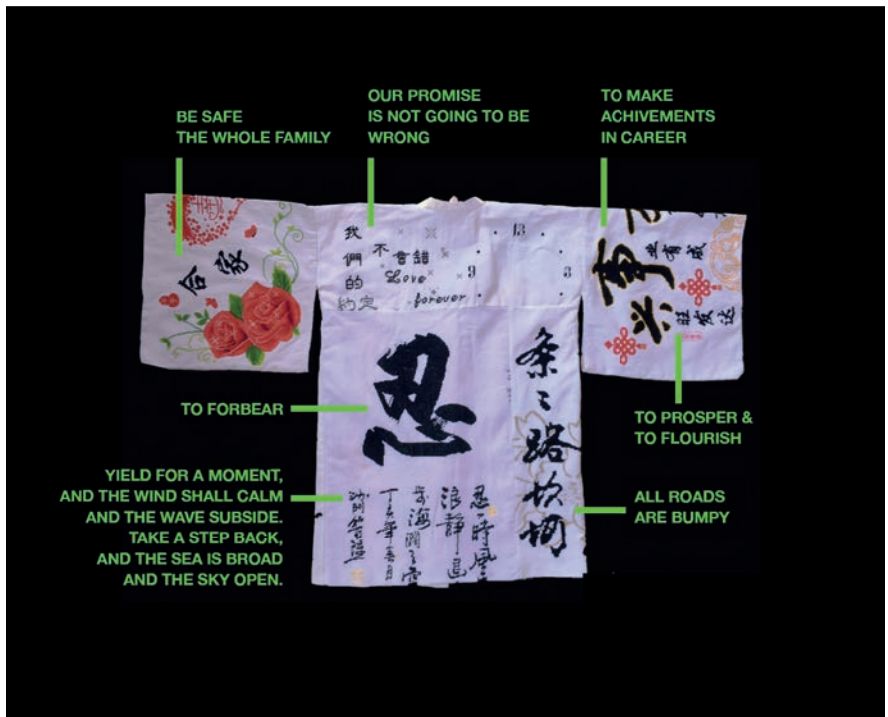 BE SAFE
THE WHOLE FAMILY
OUR PROMISE
IS NOT GOING TO BE
WRONG
TO MAKE
ACHIVEMENTS
IN CAREER
合家
我們的約定
不會錯
Love
forever
13
9
3
事
业有成
兴
旺发达
TO FORBEAR
忍
条々路坎坷
TO PROSPER &
TO FLOURISH
YIELD FOR A MOMENT,
AND THE WIND SHALL CALM
AND THE WAVE SUBSIDE.
TAKE A STEP BACK,
AND THE SEA IS BROAD
AND THE SKY OPEN.
忍一時風
浪靜退
步海闊天空
ALL ROADS
ARE BUMPY